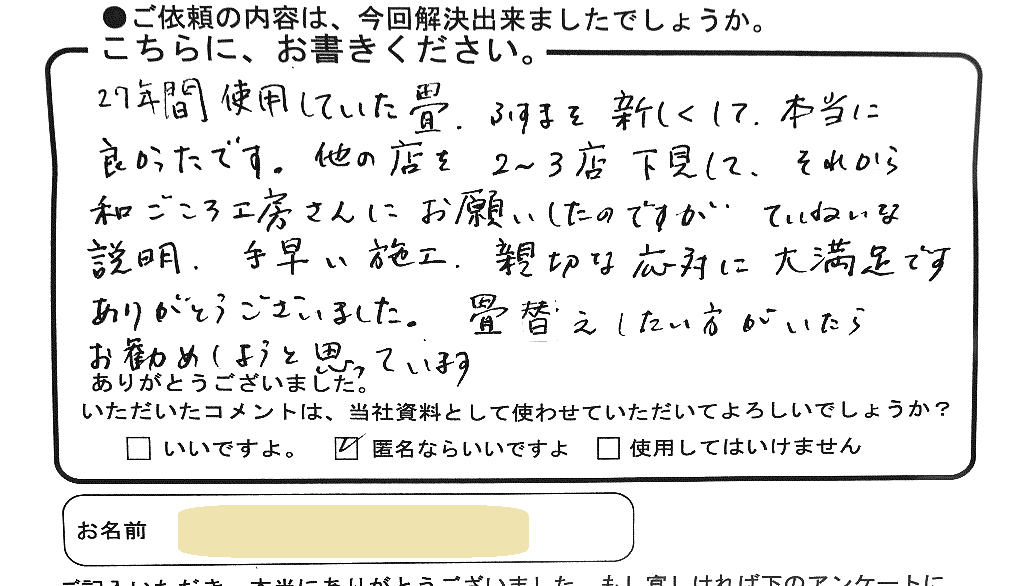 ●ご依頼の内容は、今回解決出来ましたでしょうか。
こちらに、お書きください。
27年間使用していた畳、ふすまを新しくして、本当に
良かったです。他の店を2~3店下見して、それから
和ごころ工房さんにお願いしたのですが ていねいな
説明、手早い施工、親切な応対に大満足です
ありがとうございました。 畳替えしたい方がいたら
お勧めしようと思っています
ありがとうございました。
いただいたコメントは、当社資料として使わせていただいてよろしいでしょうか?
いいですよ。 匿名ならいいですよ 使用してはいけません
お名前
ご記入いただき、本当にありがとうございました。もし宜しければ下のアンケートに